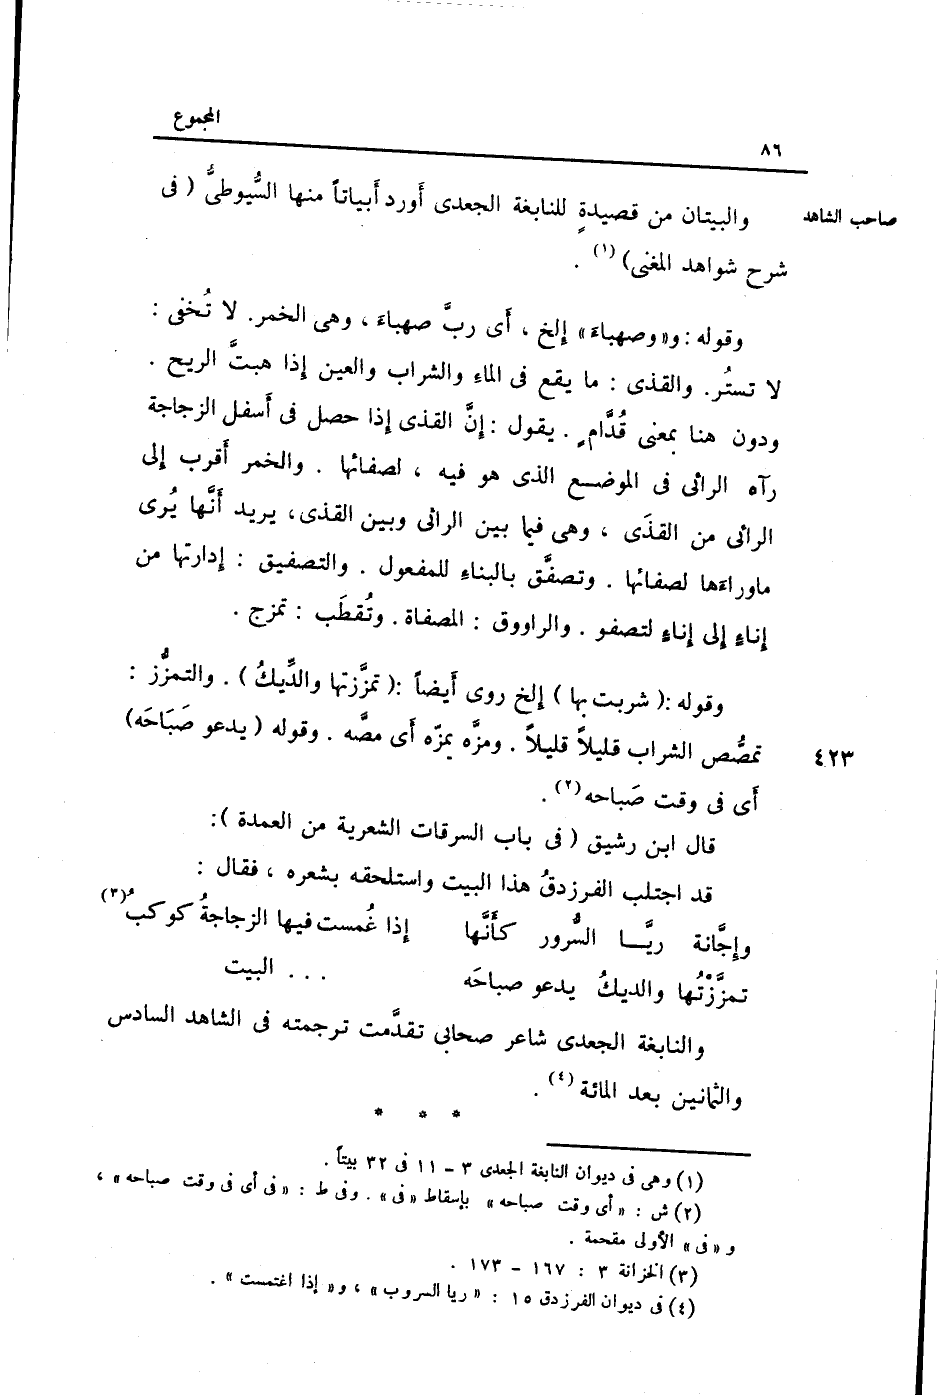 المجموع
٨٦
صاحب الشاهد
والبيتان من قصيدةٍ للنابغة الجعدى أَورد أَبياتاً منها السُّيوطىُّ ( فى
شرح شواهد المغنى) (١) .
وقوله : و«وصهباءَ» إلخ ، أَى ربَّ صهباءَ ، وهى الخمر. لا تُخفى :
لا تستُر. والقذى : ما يقع فى الماءِ والشراب والعين إذا هبتَّ الريح .
ودون هنا بمعنى قُدَّامٍ . يقول : إنَّ القذى إذا حصل فى أَسفل الزجاجة
رآه الرائى فى الموضع الذى هو فيه ، لصفائها . والخمر أَقرب إلى
الرائى من القذَى ، وهى فيما بين الرائى وبين القذى، يريد أَنَّها يُرى
ماوراءَها لصفائها . وتصفَّق بالبناءِ للمفعول . والتصفيق : إدارتها من
إناءٍ إلى إناءٍ لتصفو . والراووق : المصفاة . وتُقطَب : تمزج .
وقوله :( شربت بها ) إلخ روى أَيضاً :( تمزَّزتها والدِّيكُ ) . والتمزُّز :
تمصُّص الشراب قليلاً قليلاً . ومزَّه يمزّه أَى مصَّه . وقوله ( يدعو صَبَاحَه)
٤٢٣
أَى فى وقت صَباحه (٢) .
قال ابن رشيق ( فى باب السرقات الشعرية من العمدة ):
قد اجتلب الفرزدقُ هذا البيت واستلحقه بشعره ، فقال :
وإجَّانة ريَّا السُّرور كأَنَّها إذا غُمست فيها الزجاجةُ كوكبُ (٣)
تمزَّزْتُها والديكُ يدعو صباحَه . . . البيت
والنابغة الجعدى شاعر صحابى تقدَّمت ترجمته فى الشاهد السادس
والثمانين بعد المائة (٤) .
* * *
(١) وهى فى ديوان النابغة الجعدى ٣ – ١١ فى ٣٢ بيتاً .
(٢) ش : « أى وقت صباحه » بإسقاط « فى » . وفى ط : « فى أى فى وقت صباحه » ،
و « فى » الأولى مقحمة .
(٣) الخزانة ٣ : ١٦٧ – ١٧٣ .
(٤) فى ديوان الفرزدق ١٥ : « ريا السروب » ، و« إذا اغتمست » .